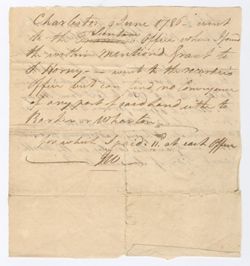 Charleston 9 June 1786 - went
to the Senton Office where I found
the within mentioned Grant to
& Horry - went to the recorders
Office but can find no conveyance
of any part of said land either to
Barker or Wharton
for which I paid at each Office